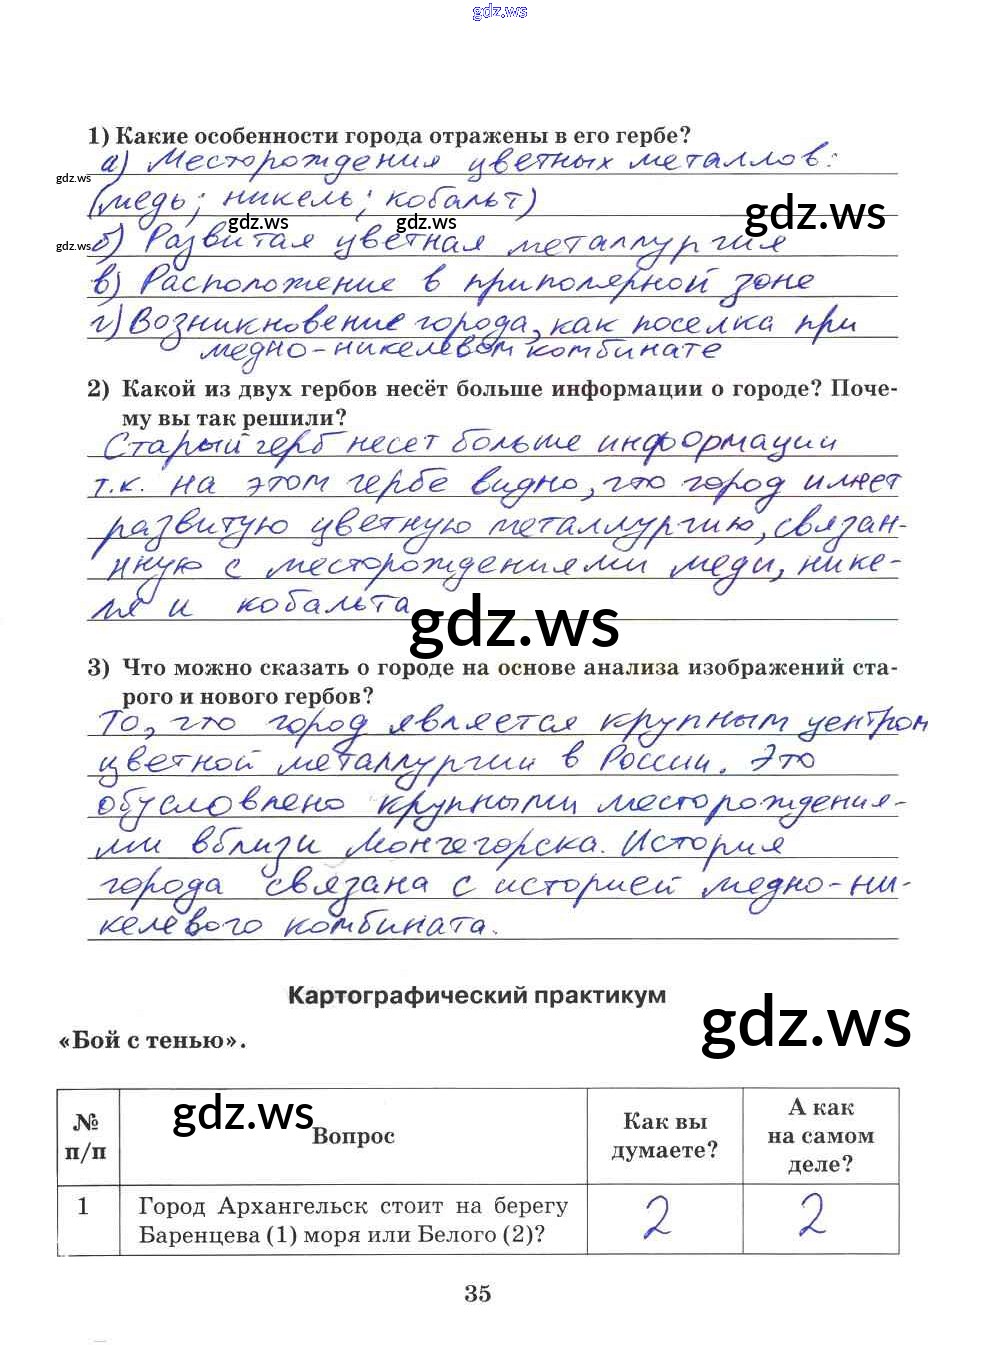 gdz.ws
1) Какие особенности города отражены в его гербе?
а) Месторождения цветных металлов:
gdz.ws
(медь; никель; кобальт)
gdz.ws gdz.ws gdz.ws
gdz.ws б) Развитая цветная металлургия
в) Расположение в приполярной зоне
г) Возникновение города, как поселка при
медно-никелевом комбинате
2) Какой из двух гербов несёт больше информации о городе? Поче-
му вы так решили?
Старый герб несет больше информации
т.к. на этом гербе видно, что город имеет
развитую цветную металлургию, связан-
нную с месторождениями меди, нике-
ля и кобальта
gdz.ws
3) Что можно сказать о городе на основе анализа изображений ста-
рого и нового гербов?
То, что город является крупным центром
цветной металлургии в России. Это
обусловлено крупными месторождения-
ми вблизи Мончегорска. История
города связана с историей медно-ни-
келевого комбината.
Картографический практикум
gdz.ws
«Бой с тенью».
gdz.ws
№ п/п Вопрос Как вы думаете? А как на самом деле?
1 Город Архангельск стоит на берегу 2 2
Баренцева (1) моря или Белого (2)?
35